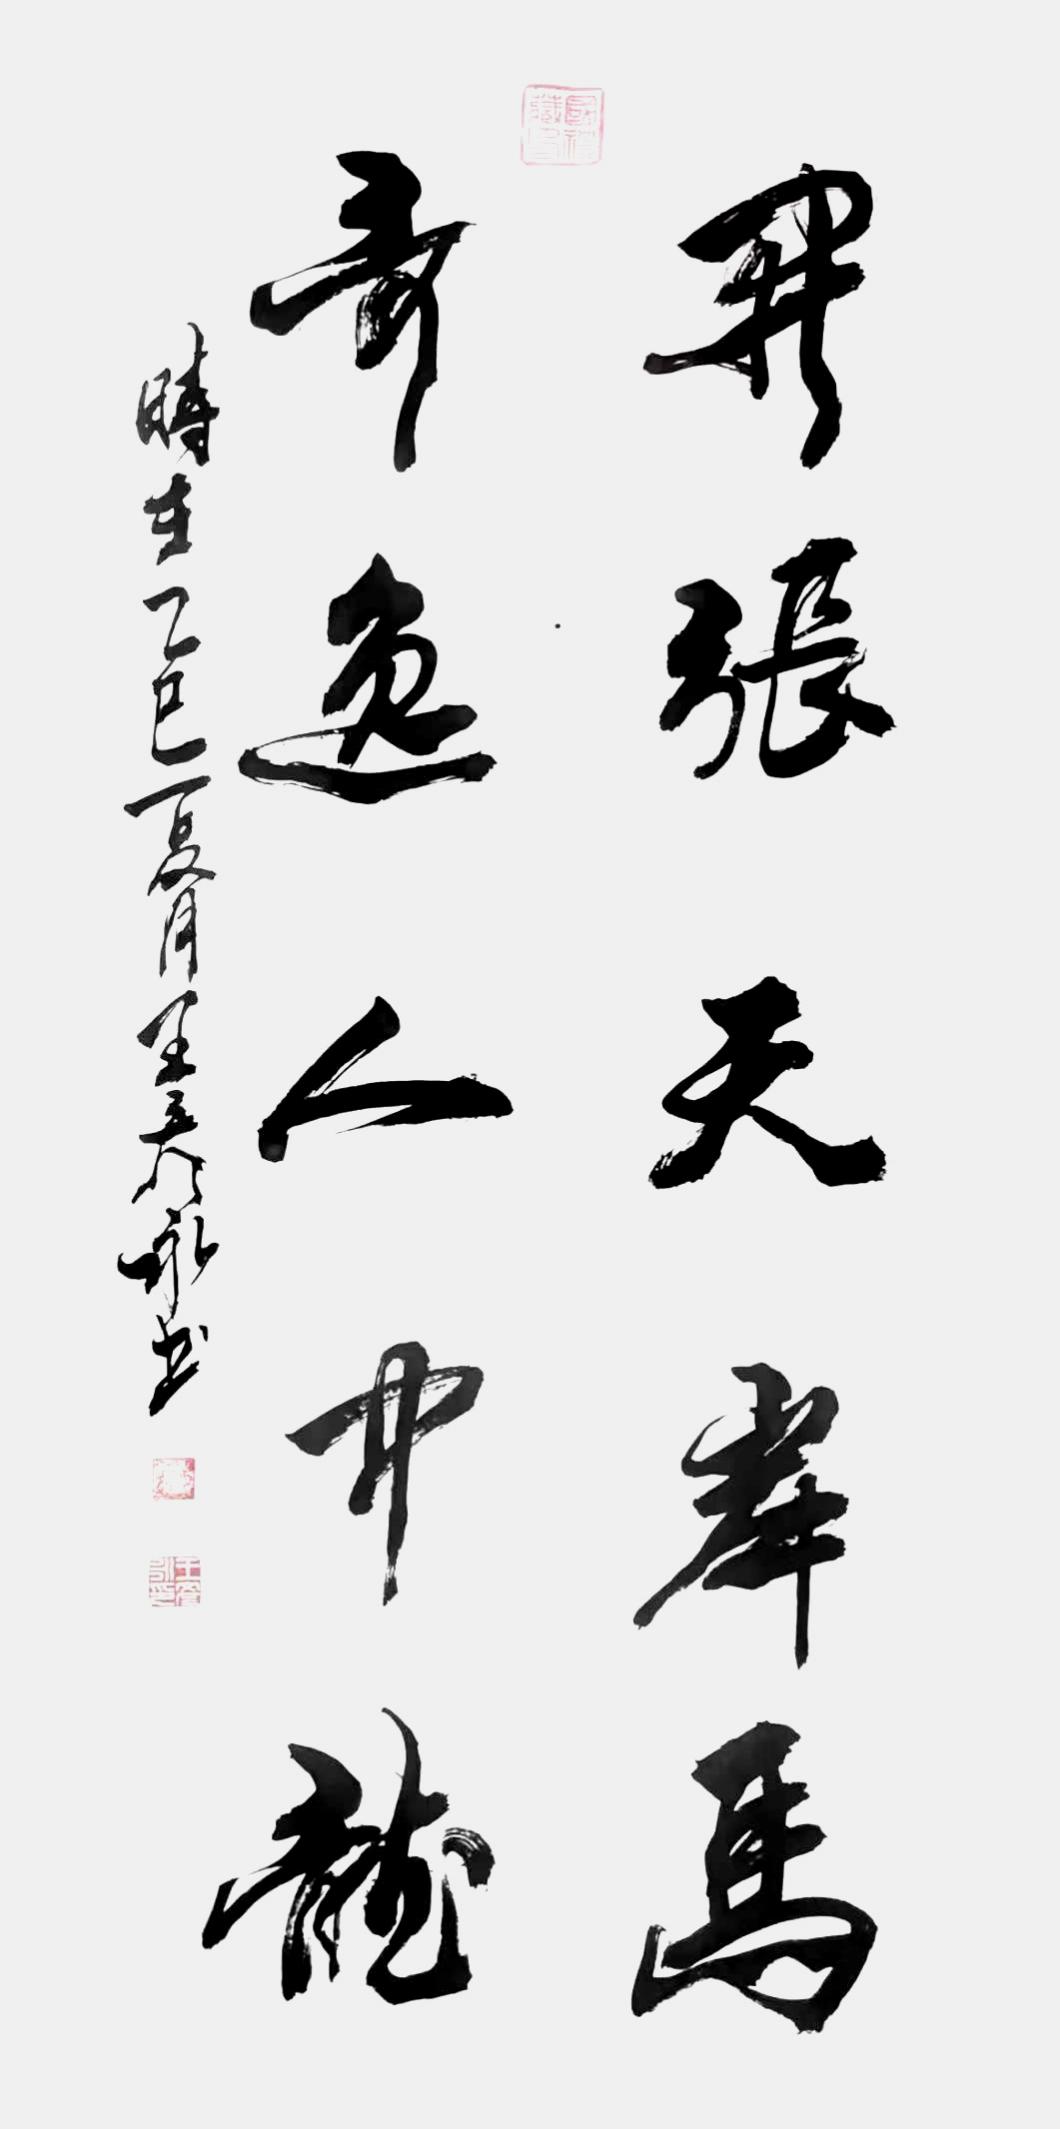 開張天岸馬
奇逸人中龍
時在乙巳夏月王永书